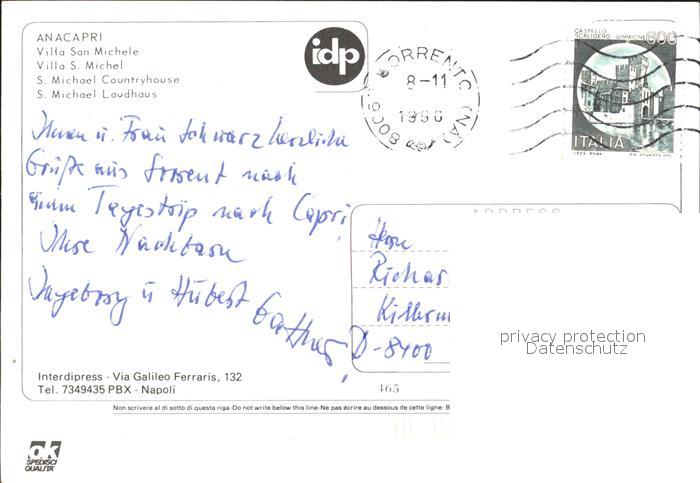 ANACAPRI
Villa San Michele
Villa S. Michel
S. Michael Countryhouse
S. Michael Laudhaus
idp
SORRENTO (NA)
8-11
1986
80067
CASTELLO
SCALIGERO - SIRMIONE
600
ITALIA
Ihnen u. Frau Schwarz herzliche
Grüße aus Sorrent nach
einem Tagestrip nach Capri,
Ihre Nachbarn
Ingeborg u Hubert
ADDRESS
Herrn
Richar
D-8400
privacy protection
Datenschutz
Interdipress - Via Galileo Ferraris, 132
Tel. 7349435 PBX - Napoli
465
Non scrivere al di sotto di questa riga-Do not write below this line-Ne pas écrire au dessous de cette ligne- B
ok
SPEDISCI
QUALITA'